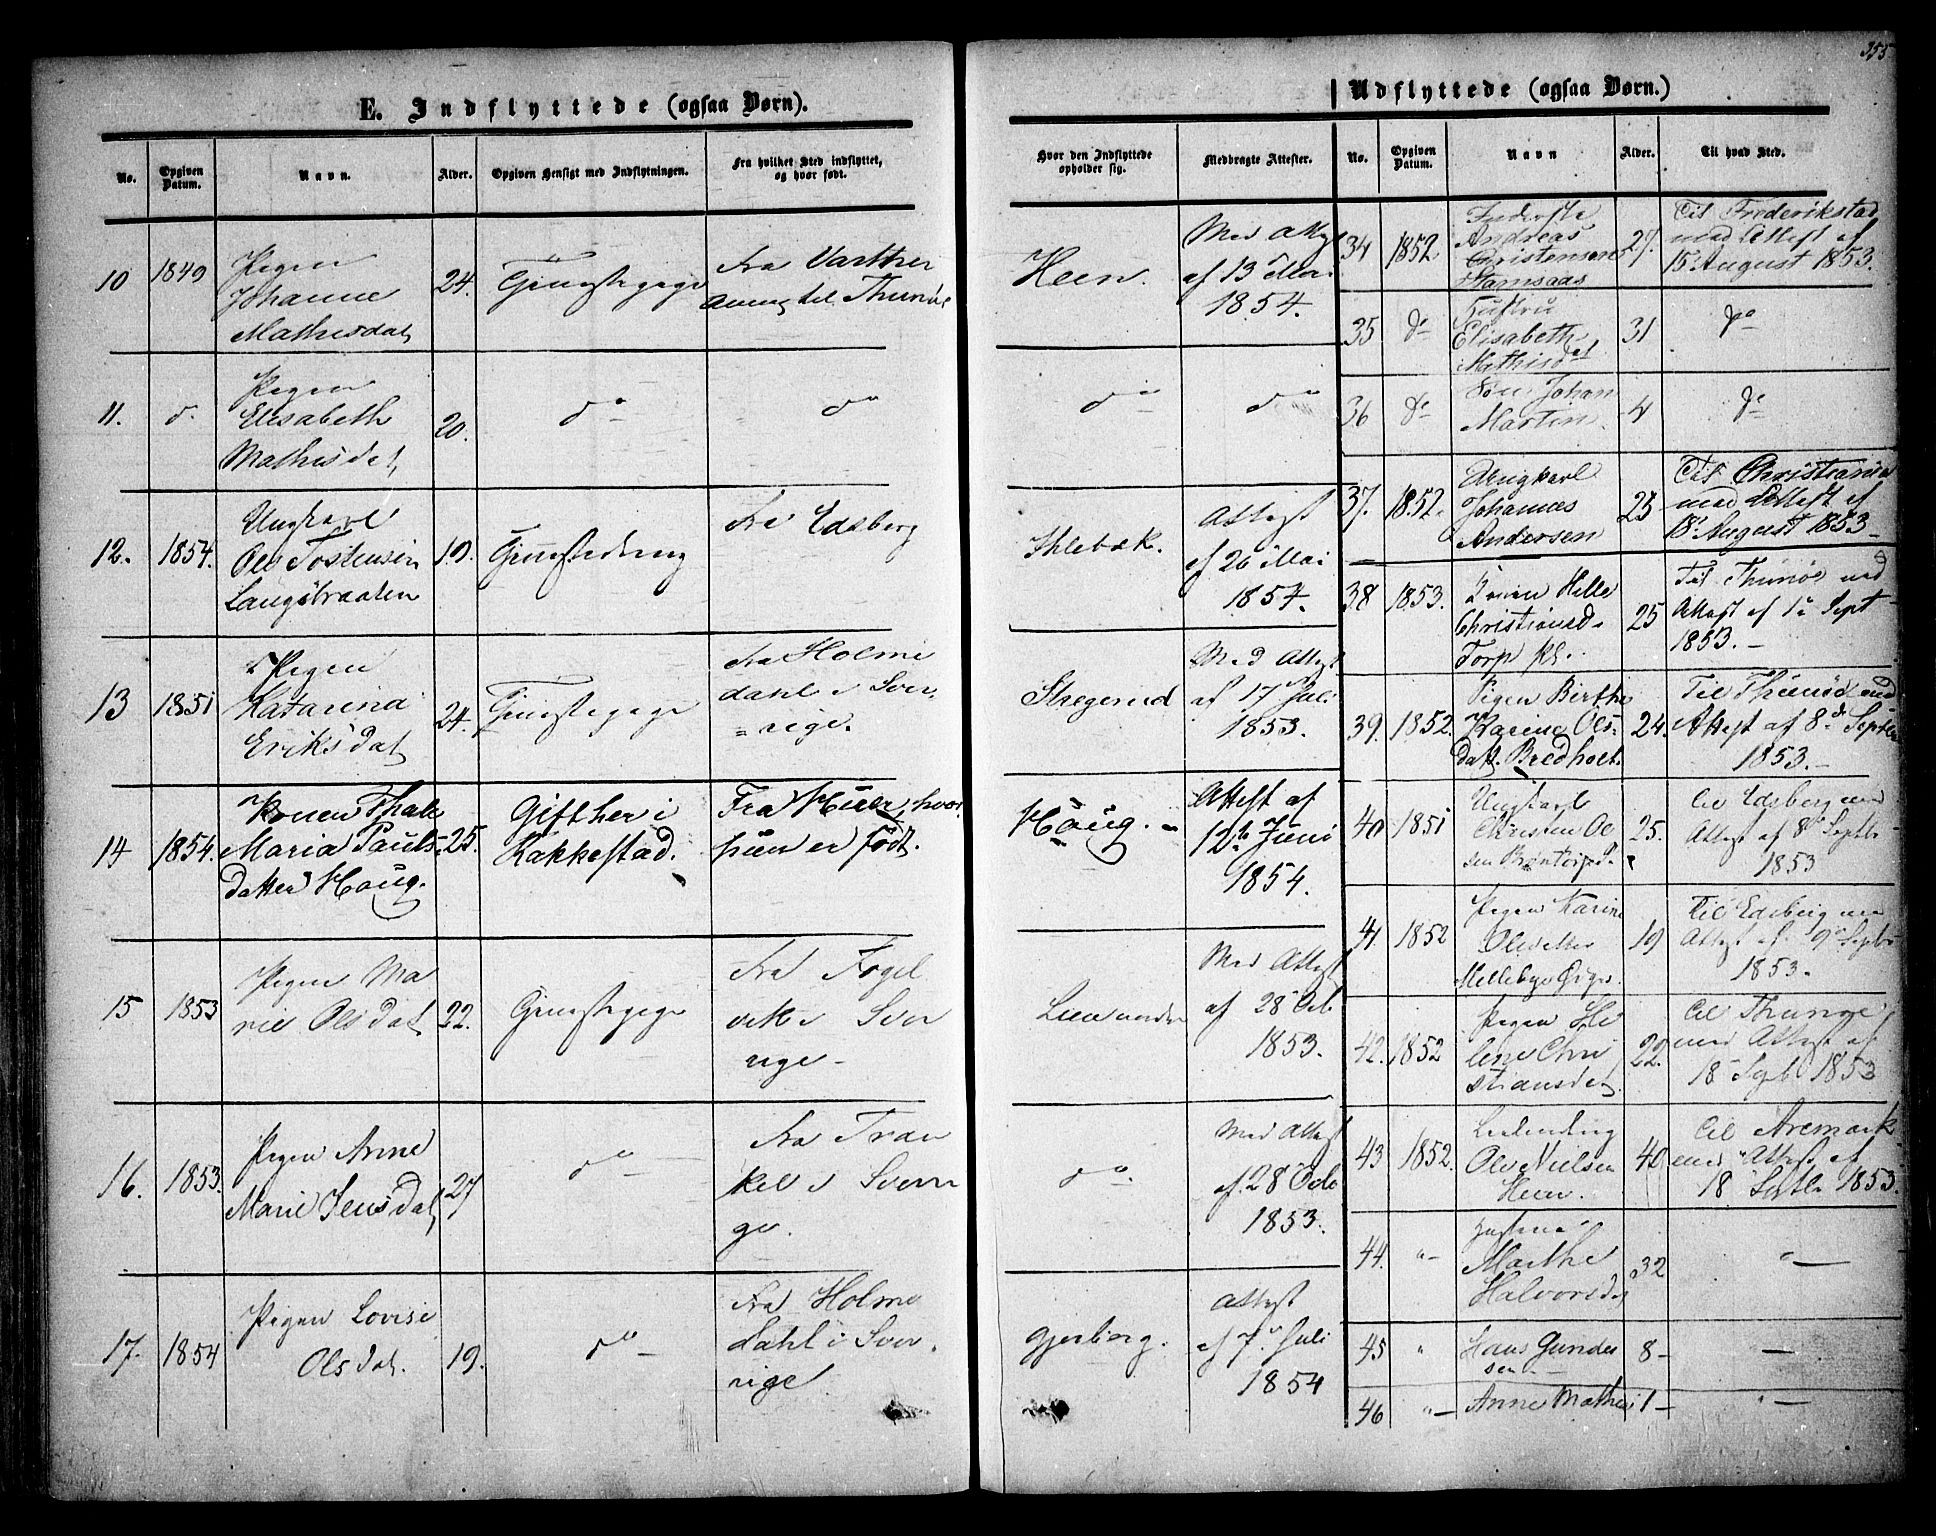 355
E. Indflyttede (ogsaa Børn).
No.
Opgiven Datum.
Navn.
Alder.
Opgiven Hensigt med Indflytningen.
Fra hvilket Sted indflyttet, og hvor født.
Hvor den Indflyttede opholder sig.
Medbragte Attester.
10
1849
Pigen
Johanne
Mathisdat
24.
Fra
Heen.
Med Attest
af 13 Mai
1854.
11.
do
Pigen
Elisabeth
Mathisdat
20.
do
do
do
do
12.
1854.
Ungkarl
Ole Tostensen
19.
Fra Edsberg
Attest
af 26 Mai
1854.
13
1851
Pigen
Katarina
Eriksdat
24.
Fra Holme
dahl i Sver
rige.
Med Attest
af 17 Juli
1853.
14
1854.
Konen Thale
Maria Pauls-
datter Haug.
25.
Gift her i
Rakkestad.
Fra Huer, hvor
hun er født.
Haug.
Attest af
12te Juni
1854.
15
1853
Pigen Ma
rie Olsdat
22.
Fra Fogel
vik i Sver
rige
Med Attest
af 28 Octo
1853.
16.
1853.
Pigen Anne
Marie Jensdat
27
do
Fra Tran
kel i Sverri
ge.
do.
Med Attest
af 28 Octo
1853.
17.
1854
Pigen Lovise
Olsdat.
19.
do
Fra Holme
dahl i Sver
rige.
Gjerberg.
Attest
af 7. Juli
1854
Udflyttede (ogsaa Børn.)
No.
Opgiven Datum.
Navn
Alder.
Til hvad Sted.
34
1852
Inderste
Andreas
Christensen
27.
Til Frederikstad
med Attest af
15 August 1853.
35
do
Hustru
Elisabeth
Mathisdat
31
do
36
do
Søn Johan
Martin
4
do
37.
1852.
Ungkarl
Johannes
Andersen
25
Til Christiania
med Attest af
18 August 1853
38
1853.
Helle
Christiansd.
Torp
25
Til Thunøe med
Attest af 12 Sept
1853.
39.
1852.
Pigen Birthe
Karine Ols
datt. Bredholt.
24.
Til Thunøe med
Attest af 8de Septbr
1853.
40
1851
Ungkarl
Christen Ol
sen
25.
Til Edsberg med
Attest af 8de Septbr
1853
41
1852
Pigen Karine
Olsdatter
19
Til Edsberg med
Attest af 9 Septbr
1853.
42.
1852
Pigen He
lene Chri
stiansdat
22.
Til Thunøe
med Attest af
18 Septb 1853
43
1852.
Ole Nielsen
Heen.
40
Til Aremark
med Attest af
18 Septbr 1853.
44.
"
Marthe
Halvorsd
32
"
45
"
Hans Gunder
sen
8
46
"
Anne Mathea
1
"